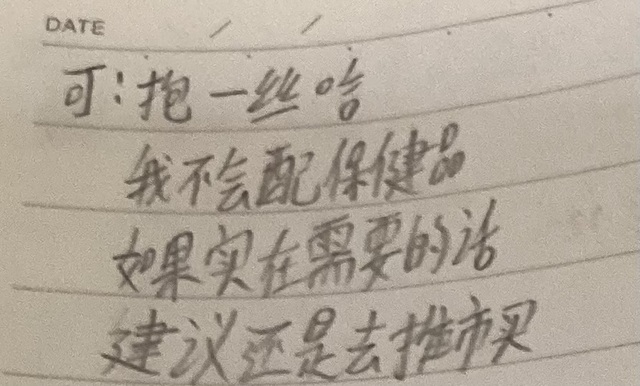 DATE / /
可：抱一丝哈
我不会配保健品
如果实在需要的话
建议还是去推市买